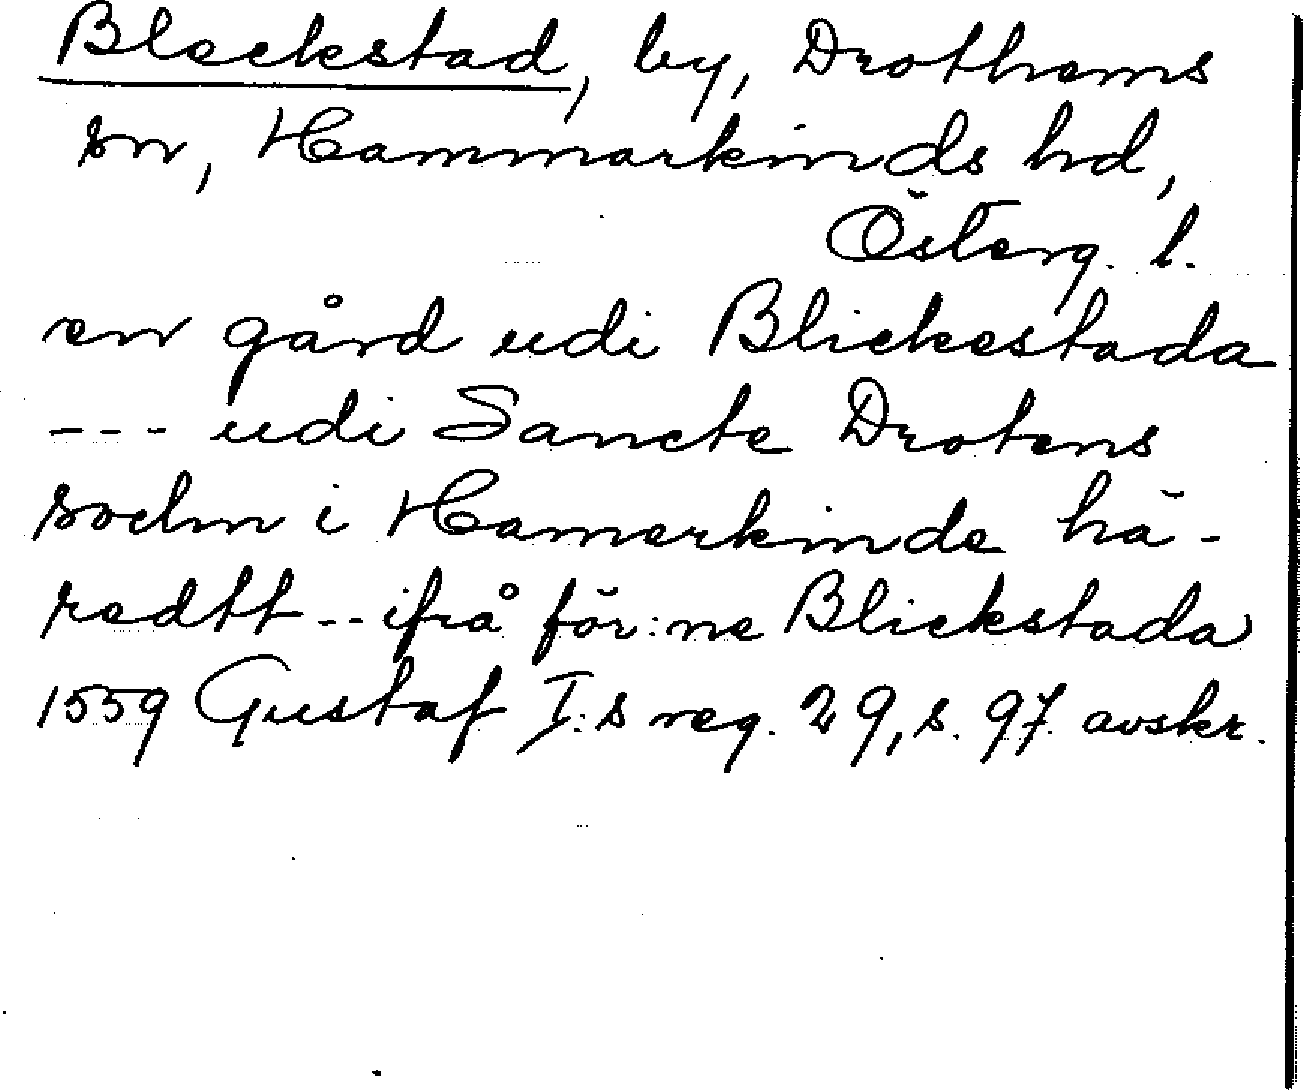 Bleckstad, by, Drothems
sn, Hammarkinds hd,
Österg. l.
en gård udi Blickestada
--- udi Sancte Drotens
sochn i Hamerkinde hä-
redtt -- ifrå för:ne Blickstada
1559 Gustaf I:s reg. 29, s. 97 avskr.